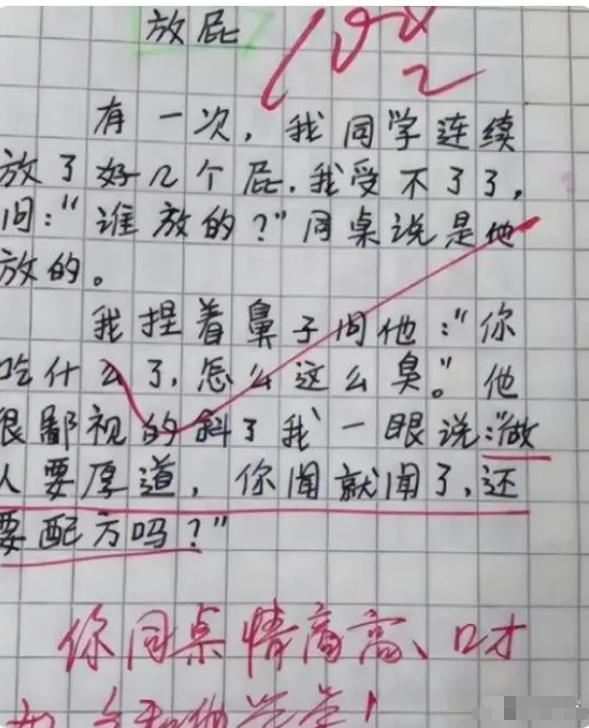 放屁
有一次，我同学连续
放了好几个屁，我受不了了，
问：“谁放的？”同桌说是他
放的。
我捏着鼻子问他：“你
吃什么了，怎么这么臭。”他
很鄙视的斜了我一眼说：“做
人要厚道，你闻就闻了，还
要配方吗？”
你同桌情商高、口才